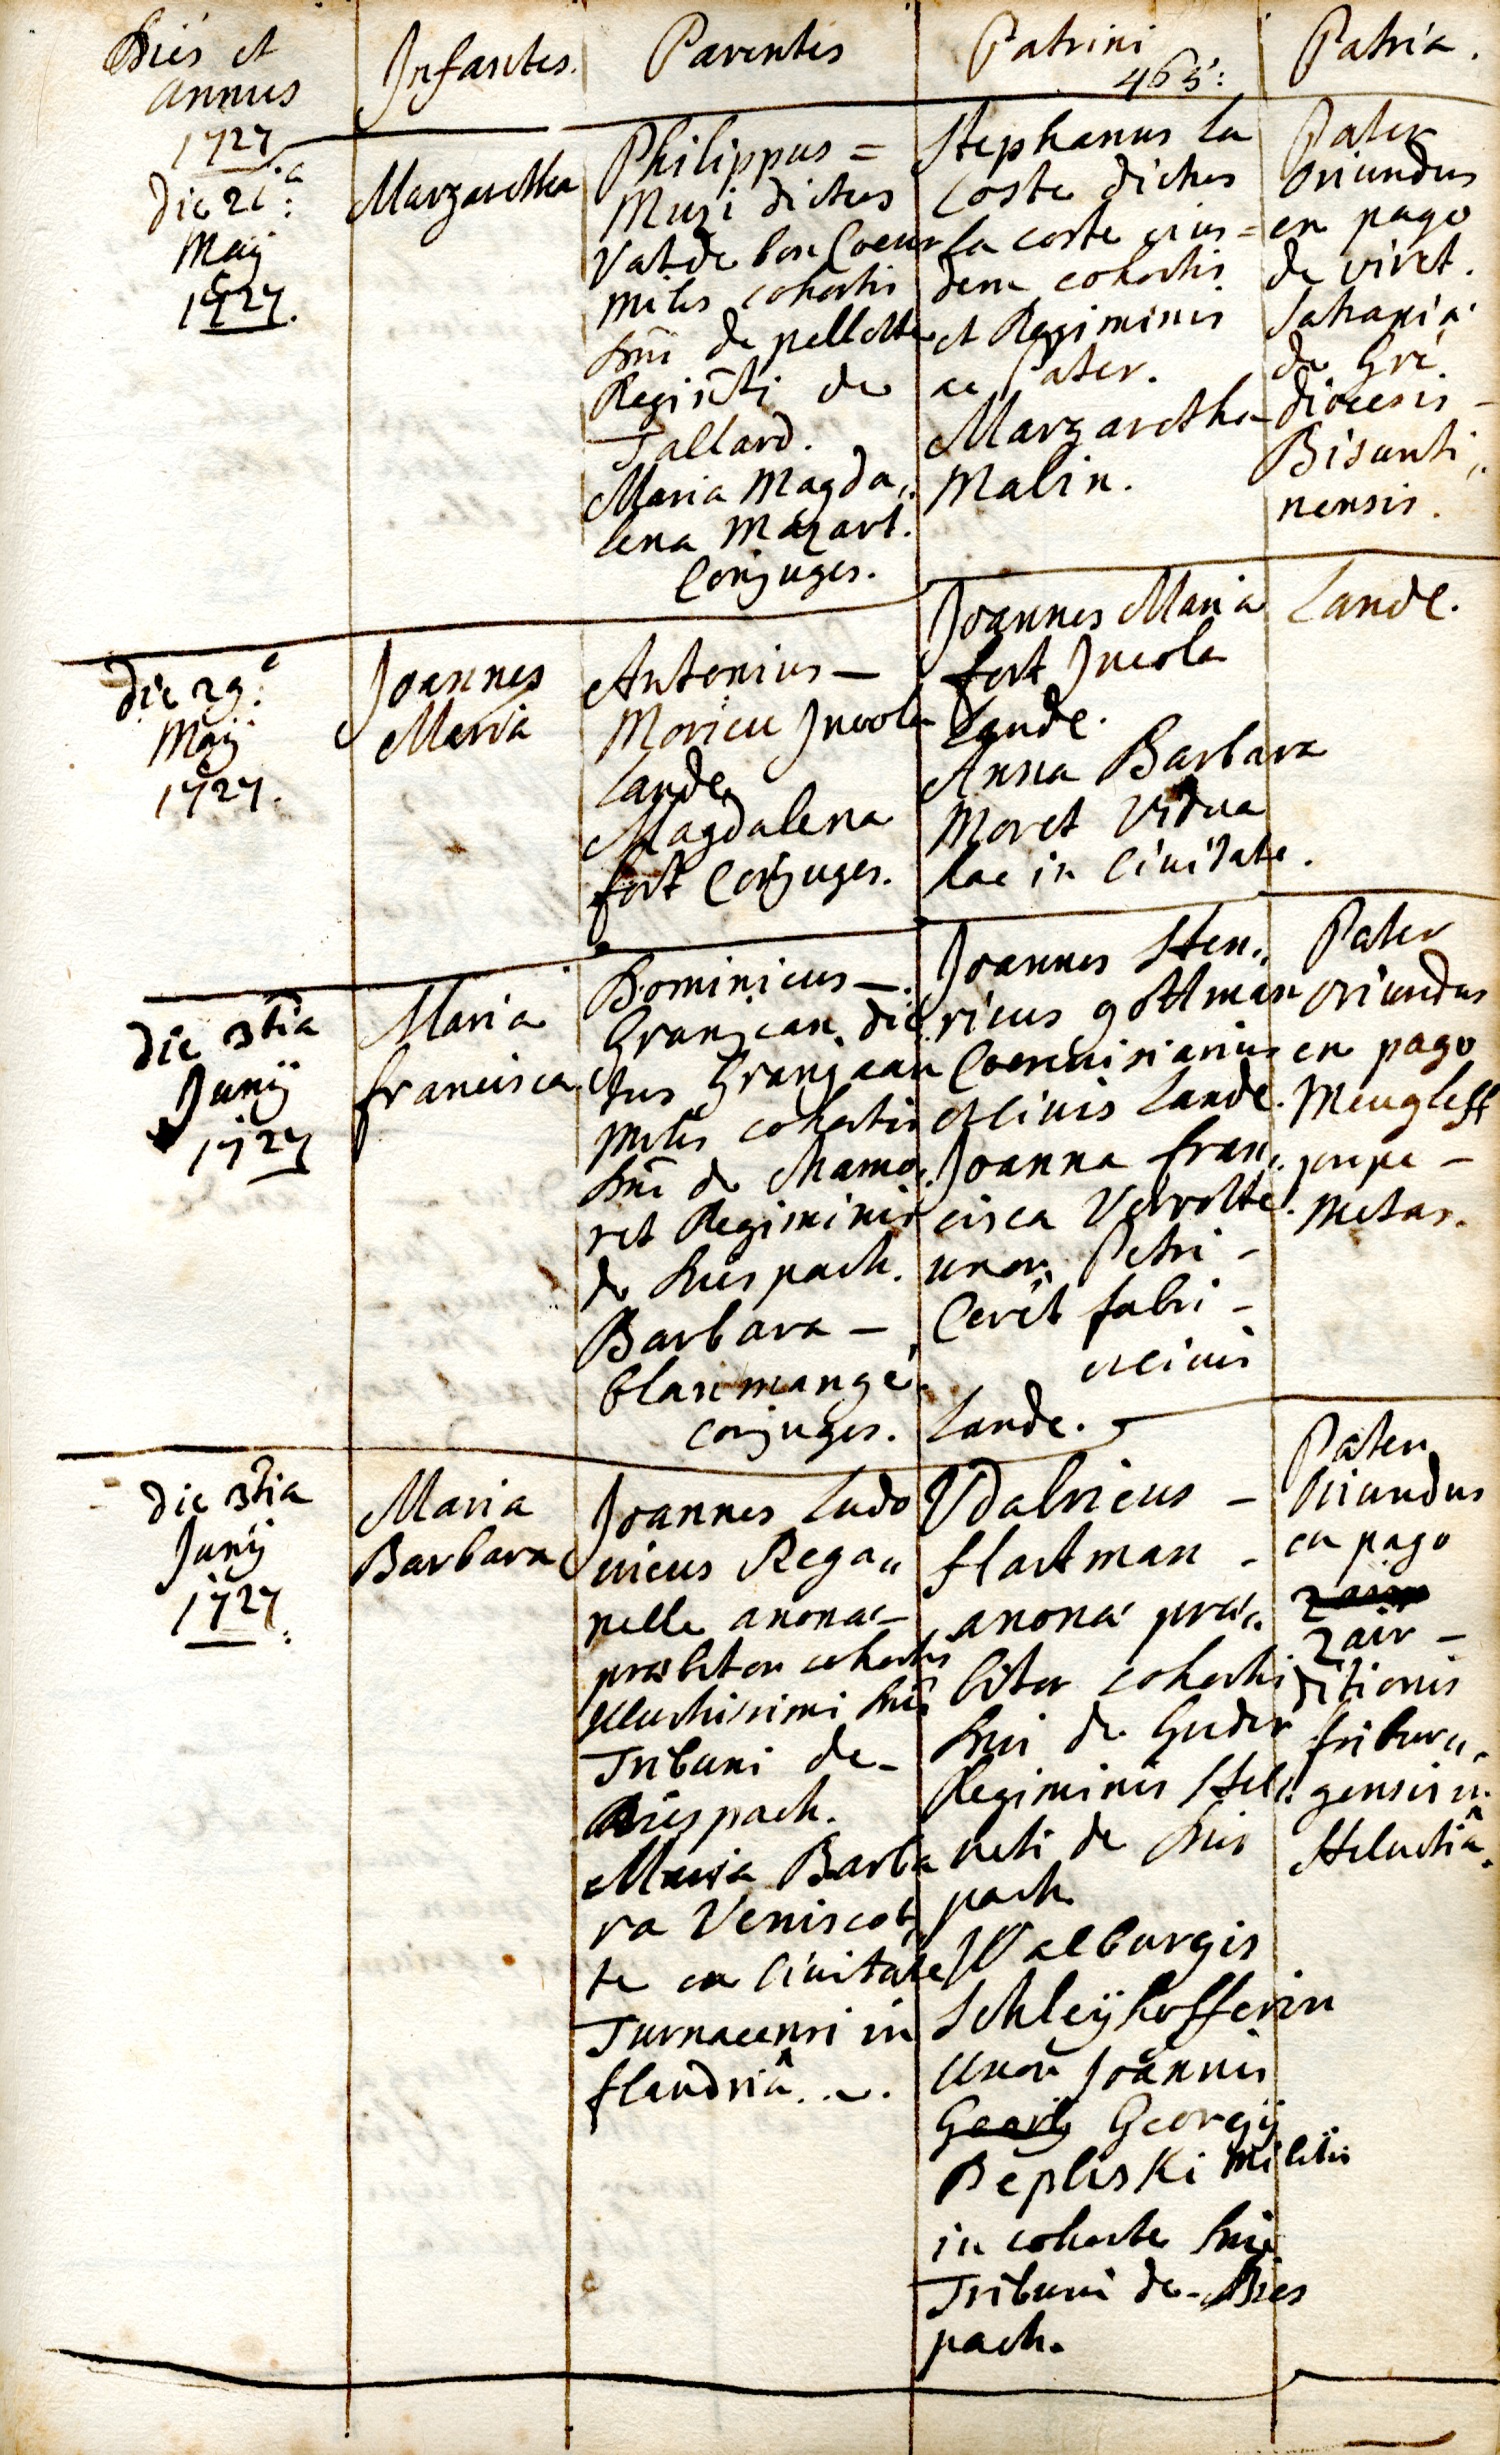 Dies et
annus
1727
Infantes.
Parentes
Patrini
465:
Patria.
die 21.a
Maÿ
1727.
Margaretha
Philippus =
Muzi dictus
Vat de bon Coeur
miles cohortis
Dni de pellette
Regimti de
Tallard.
Maria Magda„
lena Mazart.
Conjuges.
Stephanus la
Coste dictus
la coste eius =
dem cohortis
et Regiminis
ac Pater.
Margaretha
Malin.
Pater
oriundus
ex pago
de viret.
de Gré
diœcesis -
Bisunti„
nensis.
die 29.a
Maÿ
1727.
Joannes
Maria
Antonius —
Moricu Incola
Landæ
Magdalena
fort Conjuges.
Joannes Maria
fort Incola
Landæ.
Anna Barbara
Moret Vidua
hac in Ciuitate.
Landæ.
die 3tia
Junÿ
1727
Maria
francisca
Dominicus —.
Granjean, dic
tus Granjean
miles cohortis
Dni de Mamo„
ret Regiminis
de Diespach.
Barbara —
blasimangé
conjuges.
Joannes Hen„
ricus gottman
et Ciuis Landæ.
Joanna fran„
cisca Vervotte
uxor Petri -
Cerét fabri -
et Ciuis
Landæ.
Pater
oriundus
ex pago
Meugleff
prope -
Metas.
die 3tia
Junÿ
1727.
Maria
Barbara
Joannes Ludo
uicus Rega„
nelle anonæ -
præbitor cohortis
Illustrissimi Dni
Tribuni de -
Diespach.
Maria Barba
ra Veniscot„
te ex Ciuitate
Turnacensi in
flandriâ.
Vdalricus -
Hartman -
anonæ præ„
bitor cohortis
Dni de Guder
Regiminis Hel„
ueti de Dies
pach
Walburgis
Schleÿhofferin
uxor Joannis
Georgÿ
Bepliski Militis
in cohorte Dni
Tribuni de - Dies
pach.
Pater
oriundus
ex pago
Zair -
ditionis
fribur„
gensis in
Heluetiâ.